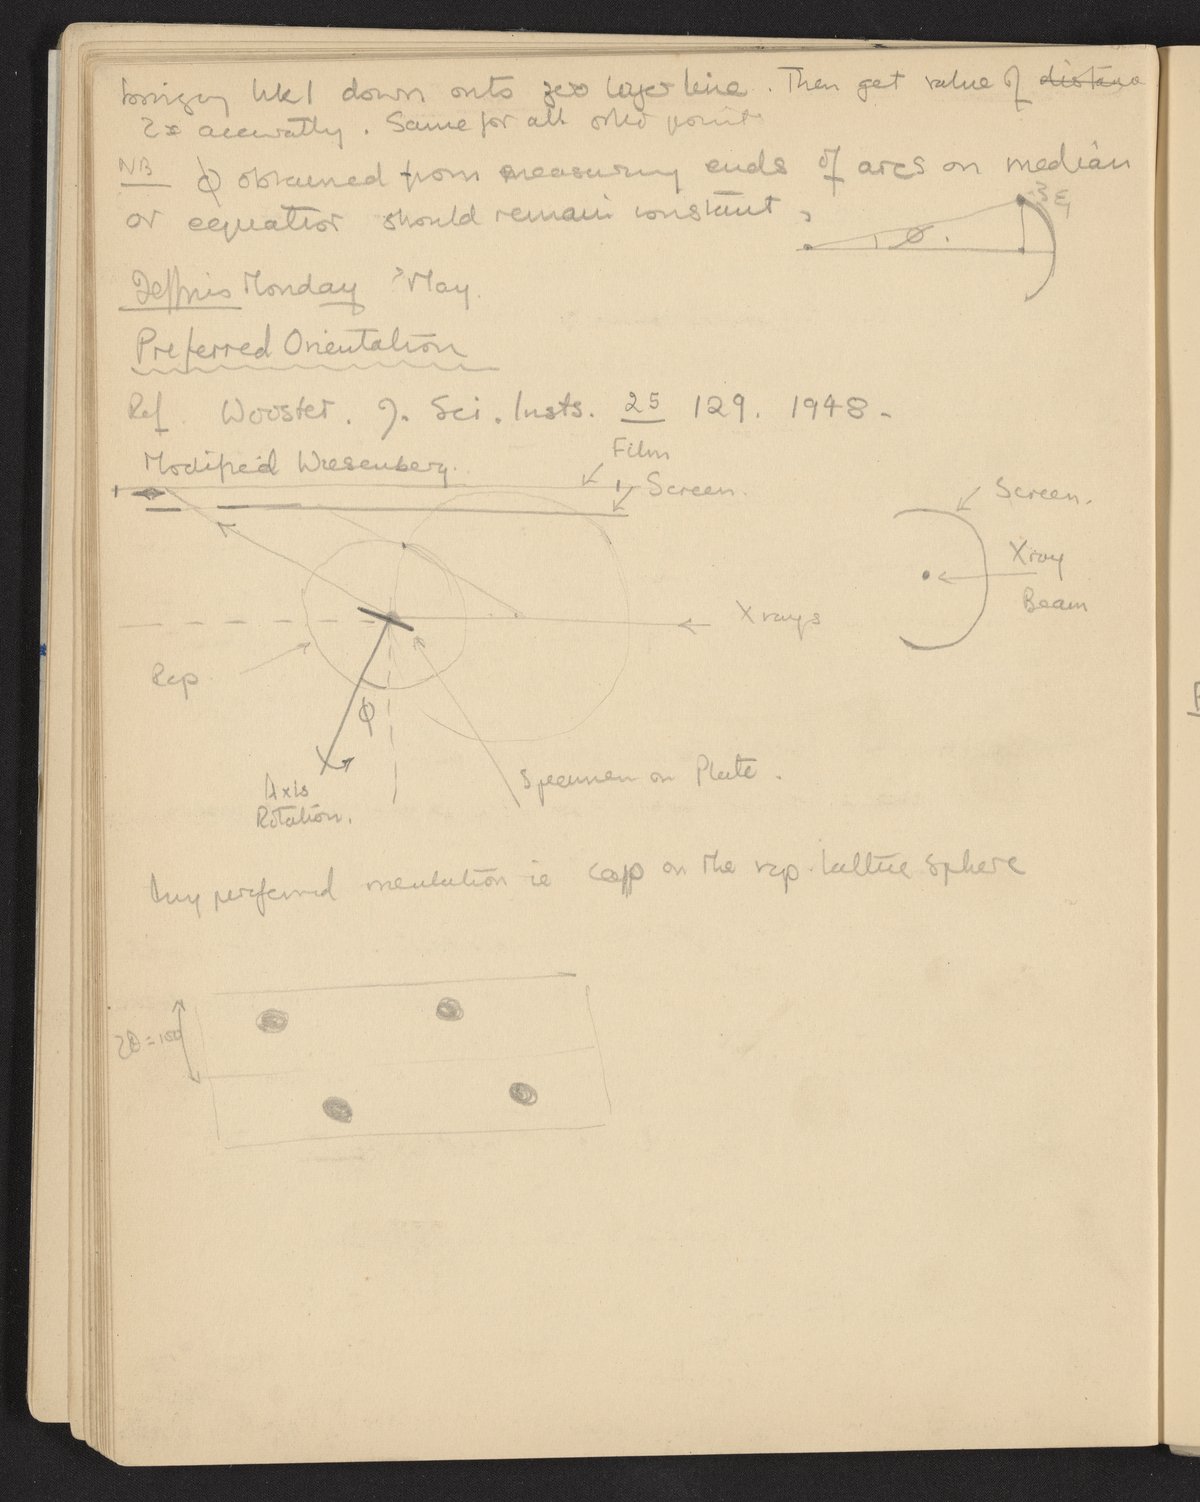 hkl down onto zero layer line. Then get value of distance
2x accuratly. Same for all other points
NB ϕ obtained from measuring ends of arcs on median
or equatior should remain constant
ϕ
Monday May.
Preferred Orientation
Ref Wooster. J. Sci. Insts. 25 129. 1948.
Film
Modified Wiesenberg.
Screen.
Screen.
Xray
Beam
X rays
Rep
ϕ
Specimen on Plate.
Axis
Rotation.
Any preferred orientation ie cap on the rep. lattice sphere
2θ =